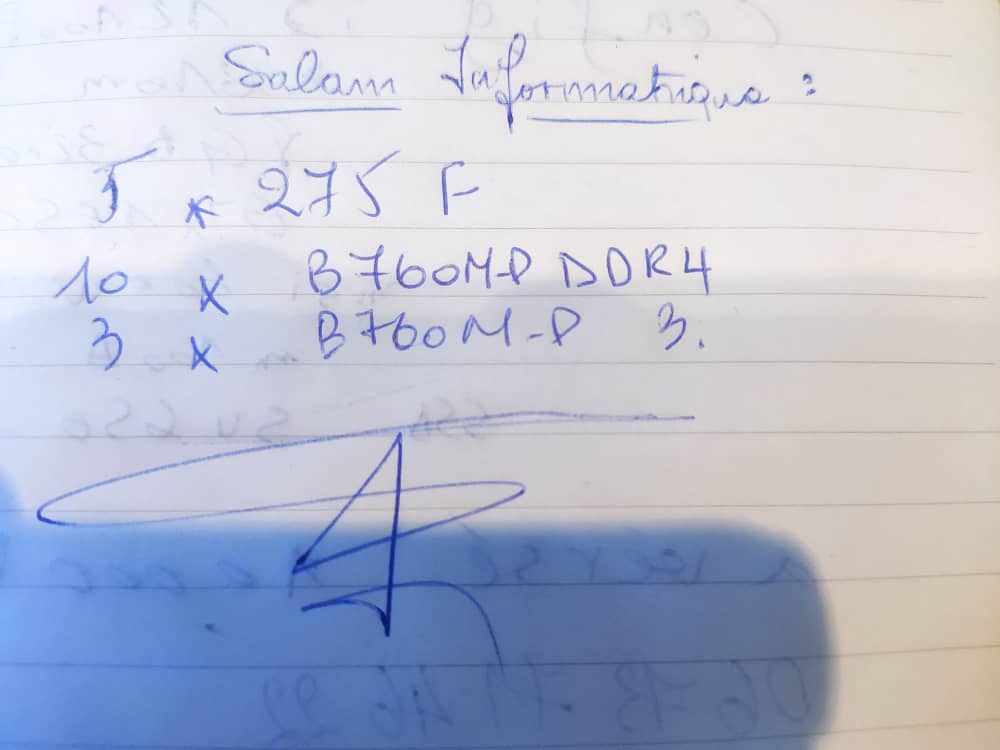 Salam Informatique :
5 * 275 F
10 x B760M-P DDR4
3 x B760M-P 3.